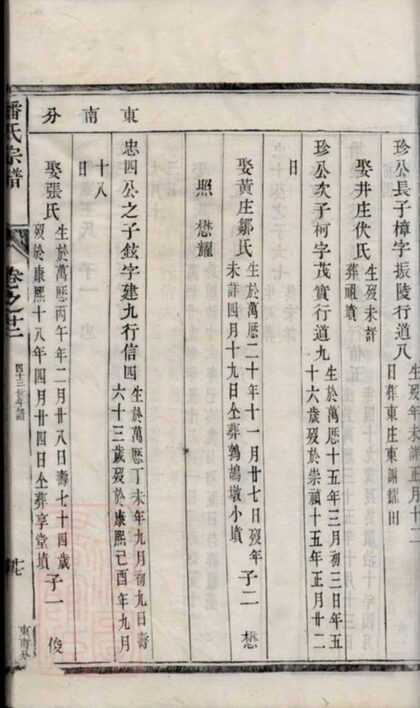 東南分
珍公長子樟字振陵行道八生歿年未詳正月十二日葬東庄東謝濫田
娶井庄伏氏生歿未詳葬祖墳
珍公次子柯字茂實行道九生於萬厯十五年三月初三日年五十六歲歿於崇禎十五年正月廿二日
娶黃庄鄒氏生於萬厯二十年十一月廿七日歿年未詳四月十九日仝葬鵓鴣墩小墳子二懋照懋耀
忠四公之子鉉字建九行信四生於萬厯丁未年九月初九日壽六十三歲歿於康熙己酉年九月十八日
娶張氏生於萬厯丙午年二月廿八日壽七十四歲歿於康熙十八年四月廿四日仝葬享堂墳子一俊
潘氏宗譜
卷之廿二
四十三世年譜
東南分